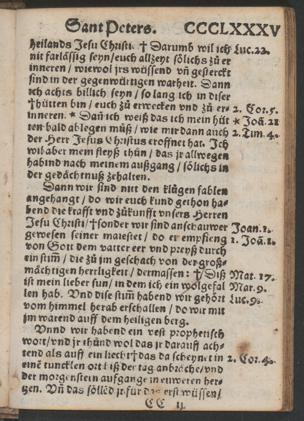 Sant Peters. CCCLXXXV
heilands Jesu Christi. † Darumb wil ich Luc.22.
nit farlässig seyn / euch allzeyt sölichs zu er
inneren / wiewol jrs wüssend vñ gesterckt
sind in der gegenwürtigen warheit. Dann
ich achts billich seyn / so lang ich in diser
† hütten bin / euch zů erwecken vnd zů er- 2. Cor.5.
inneren. * Dañ ich weiß das ich mein hüt * Joã.21
ten bald ablegen můß / wie mir dann auch 2. Tim.4.
der Herr Jesus Christus eroffnet hat. Ich
wil aber mein fleyß thůn / das jr allwegen
habind nach meinem außgang / sölichs in
der gedächtnuß zehalten.
Dann wir sind nitt den klůgen fablen
angehangt / do wir euch kund gethon ha-
bend die krafft vnd zůkunfft vnsers Herren
Jesu Christi / † sonder wir sind anschauwer Joan.1.
gewesen seiner maiestet / do er empfieng 1. Joã.1.
von Gott dem vatter eer vnd preyß durch
ein stim / die zů jm geschach von der groß-
mächtigen herrligkeit / dermassen: † Diß Mat. 17.
ist mein lieber sun / in dem ich ein wolgefal Mar.9.
len hab. Vnd dise stim̃ habend wir gehört Luc.9.
vom himmel herab erschallen / do wir mit
jm warend auff dem heiligen berg.
Vnnd wir habend ein vest prophetisch
wort / vnd jr thůnd wol das jr darauff ach-
tend als auff ein liecht † das da scheynet in 2. Cor.4.
einẽ tuncklen ort biß der tag anbräche / vnd
der morgenstern aufgange in euweren her-
tzen. Vñ das söllẽd jr für das erst wüssen /
CC ij